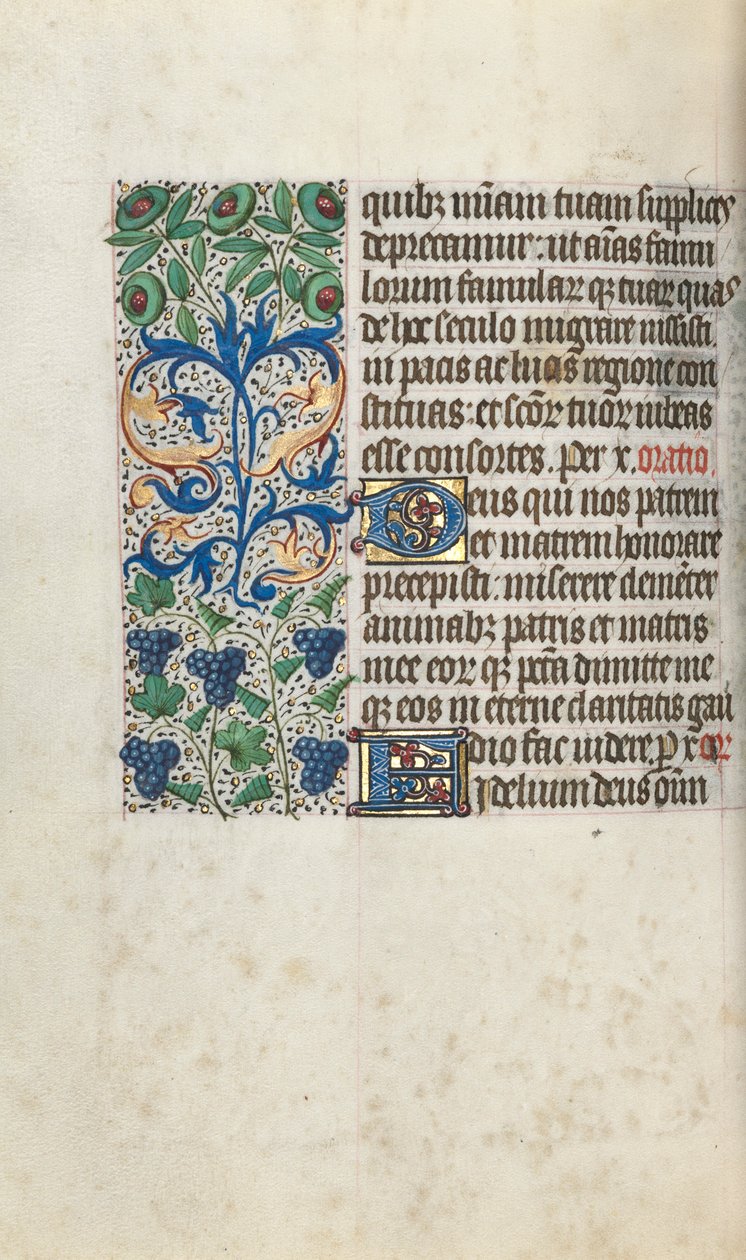 quibꝫ mĩam tuam supplicit᷒
deprecamur: ut aĩas famu
lorum famular qꝫ tuar quas
de hoc seculo migrare iussisti.
in pacis ac lucis regione con
stituas: et scõr tuõr iubeas
esse consortes. per x. oratio.
Deus qui nos patrem
et matrem honorare
precepisti: miserere clemẽter
animabꝫ patris et matris
mee eor qꝫ pctã dimitte me
qꝫ eos in eterne claritatis gau
dio fac uidere. p x or
Fidelium deus oĩm